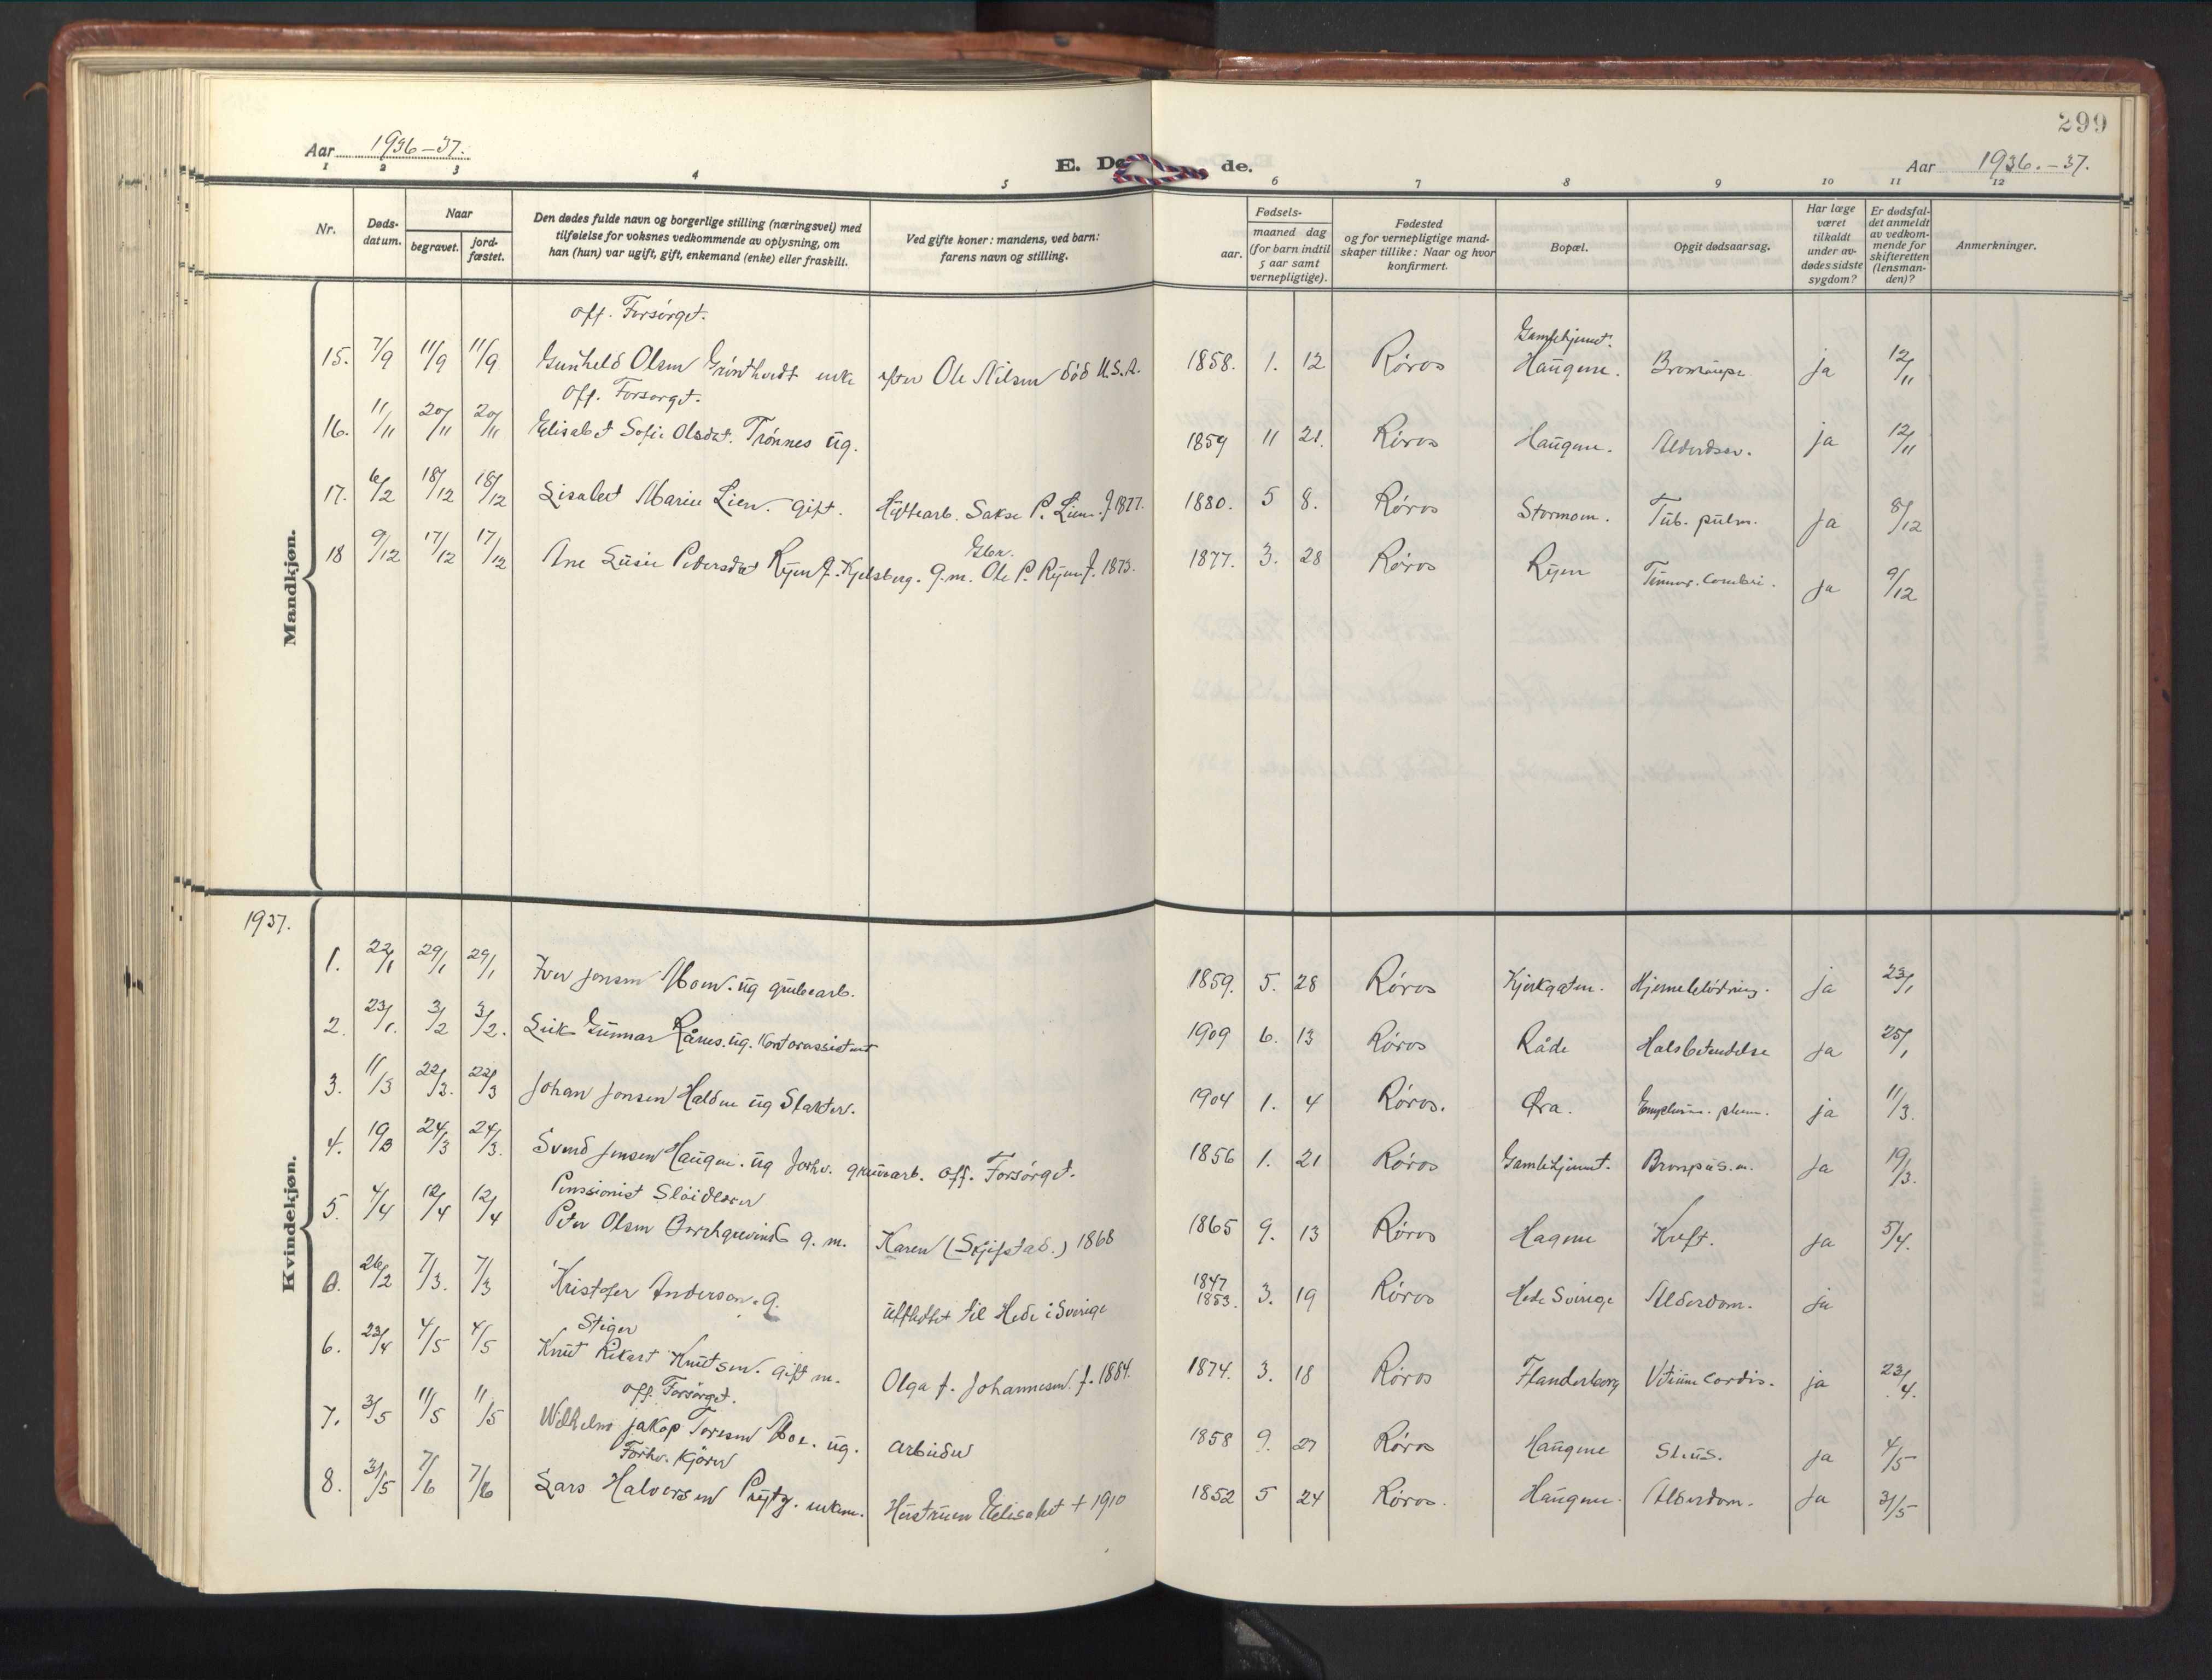 299
Aar 1936-37.
E. Dø de.
Aar 1936.-37.
1 2 3 4 5 6 7 8 9 10 11 12
Nr.
Døds-
datum.
Naar
begravet.
jord-
fæstet.
Den dødes fulde navn og borgerlige stilling (næringsvei) med
tilføielse for voksnes vedkommende av oplysning, om
han (hun) var ugift, gift, enkemand (enke) eller fraskilt.
Ved gifte koner: mandens, ved barn:
farens navn og stilling.
Fødsels-
aar.
maaned dag
(for barn indtil
5 aar samt
vernepligtige).
Fødested
og for vernepligtige mand-
skaper tillike: Naar og hvor
konfirmert.
Bopæl.
Opgit dødsaarsag.
Har læge
været
tilkaldt
under av-
dødes sidste
sygdom?
Er dødsfal-
det anmeldt
av vedkom-
mende for
skifteretten
(lensman-
den)?
Anmerkninger.
Mandkjøn.
off. Forsørget.
Gamlehjemt.
15. 7/9 11/9 11/9 Gunhild Olsen enke efter Ole Nilsen død U.S.A. 1858. 1. 12 Røros Haugene. ja 12/11
Off. Forsørget.
16. 11/11 20/11 20/11 Elisabet Sofie Olsdat. Trønnes ug. 1859 11 21. Røros Haugene. ja 12/11
17. 6/2 18/12 18/12 Lisabet Marie Lien. gift. Hyttearb. Sakse P. Lien. f 1877. 1880. 5 8. Røros Stormoen. Tub. pulm. ja 8/12
18 9/12 17/12 17/12 Ane Lusie Pedersdat Ryen f. Kjelsberg. g.m. Gbr. Ole P. Ryen f. 1873. 1877. 3. 28 Røros Ryen ja 9/12
Kvindekjøn.
1937.
1. 22/1 29/1 29/1 Iver Jonsen Moen. ug grubearb. 1859. 5. 28 Røros Kjerkgaten. Hjerneblødning. ja 23/1
2. 23/1. 3/2 3/2. Gunnar Rånes. ug. Kontorassistent 1909 6. 13 Røros Råde Halsbetendelse ja 25/1
3. 11/3 22/3. 22/3 Johan Jonsen Halden ug Slakter. 1904 1. 4 Røros. Øra. ja 11/3.
4. 19/3 24/3 24/3. Svend Jensen Haugen. ug forhv. gruvearb. off. Forsørget. 1856 1. 21 Røros Gamlehjemt. ja 19/3.
Penssionist Sløidlærer
5. 4/4 12/4 12/4 Peter Olsen Borchgrevink g. m. Karen (Skjefstad.) 1868 1865 9. 13 Røros Hagene Kreft. ja 5/4.
0. 26/2 7/3. 7/3 Kristofer Anderson. g. utflyttet til Hede i Sverige 1847 1853. 3. 19 Røros Hede Sverige Alderdom. ja
Stiger
6. 23/4 4/5 4/5 Knut Rikart Knutsen. gift m. Olga f. Johannesen. f. 1884. 1874. 3. 18 Røros Flanderborg Vitium Cordis. ja 23/4.
off. Forsørget.
7. 3/5 11/5 11/5 Wilhelm Jakop Toresen Moe. ug. arbeider 1858 9. 27 Røros Haugene ja 4/5
Forhv. kjører
8. 31/5 7/6 7/6 Lars Halvorsen Prytz. enkem. Hustruen Elisabet + 1910 1852 5 24 Røros. Haugene. Alderdom. ja 31/5